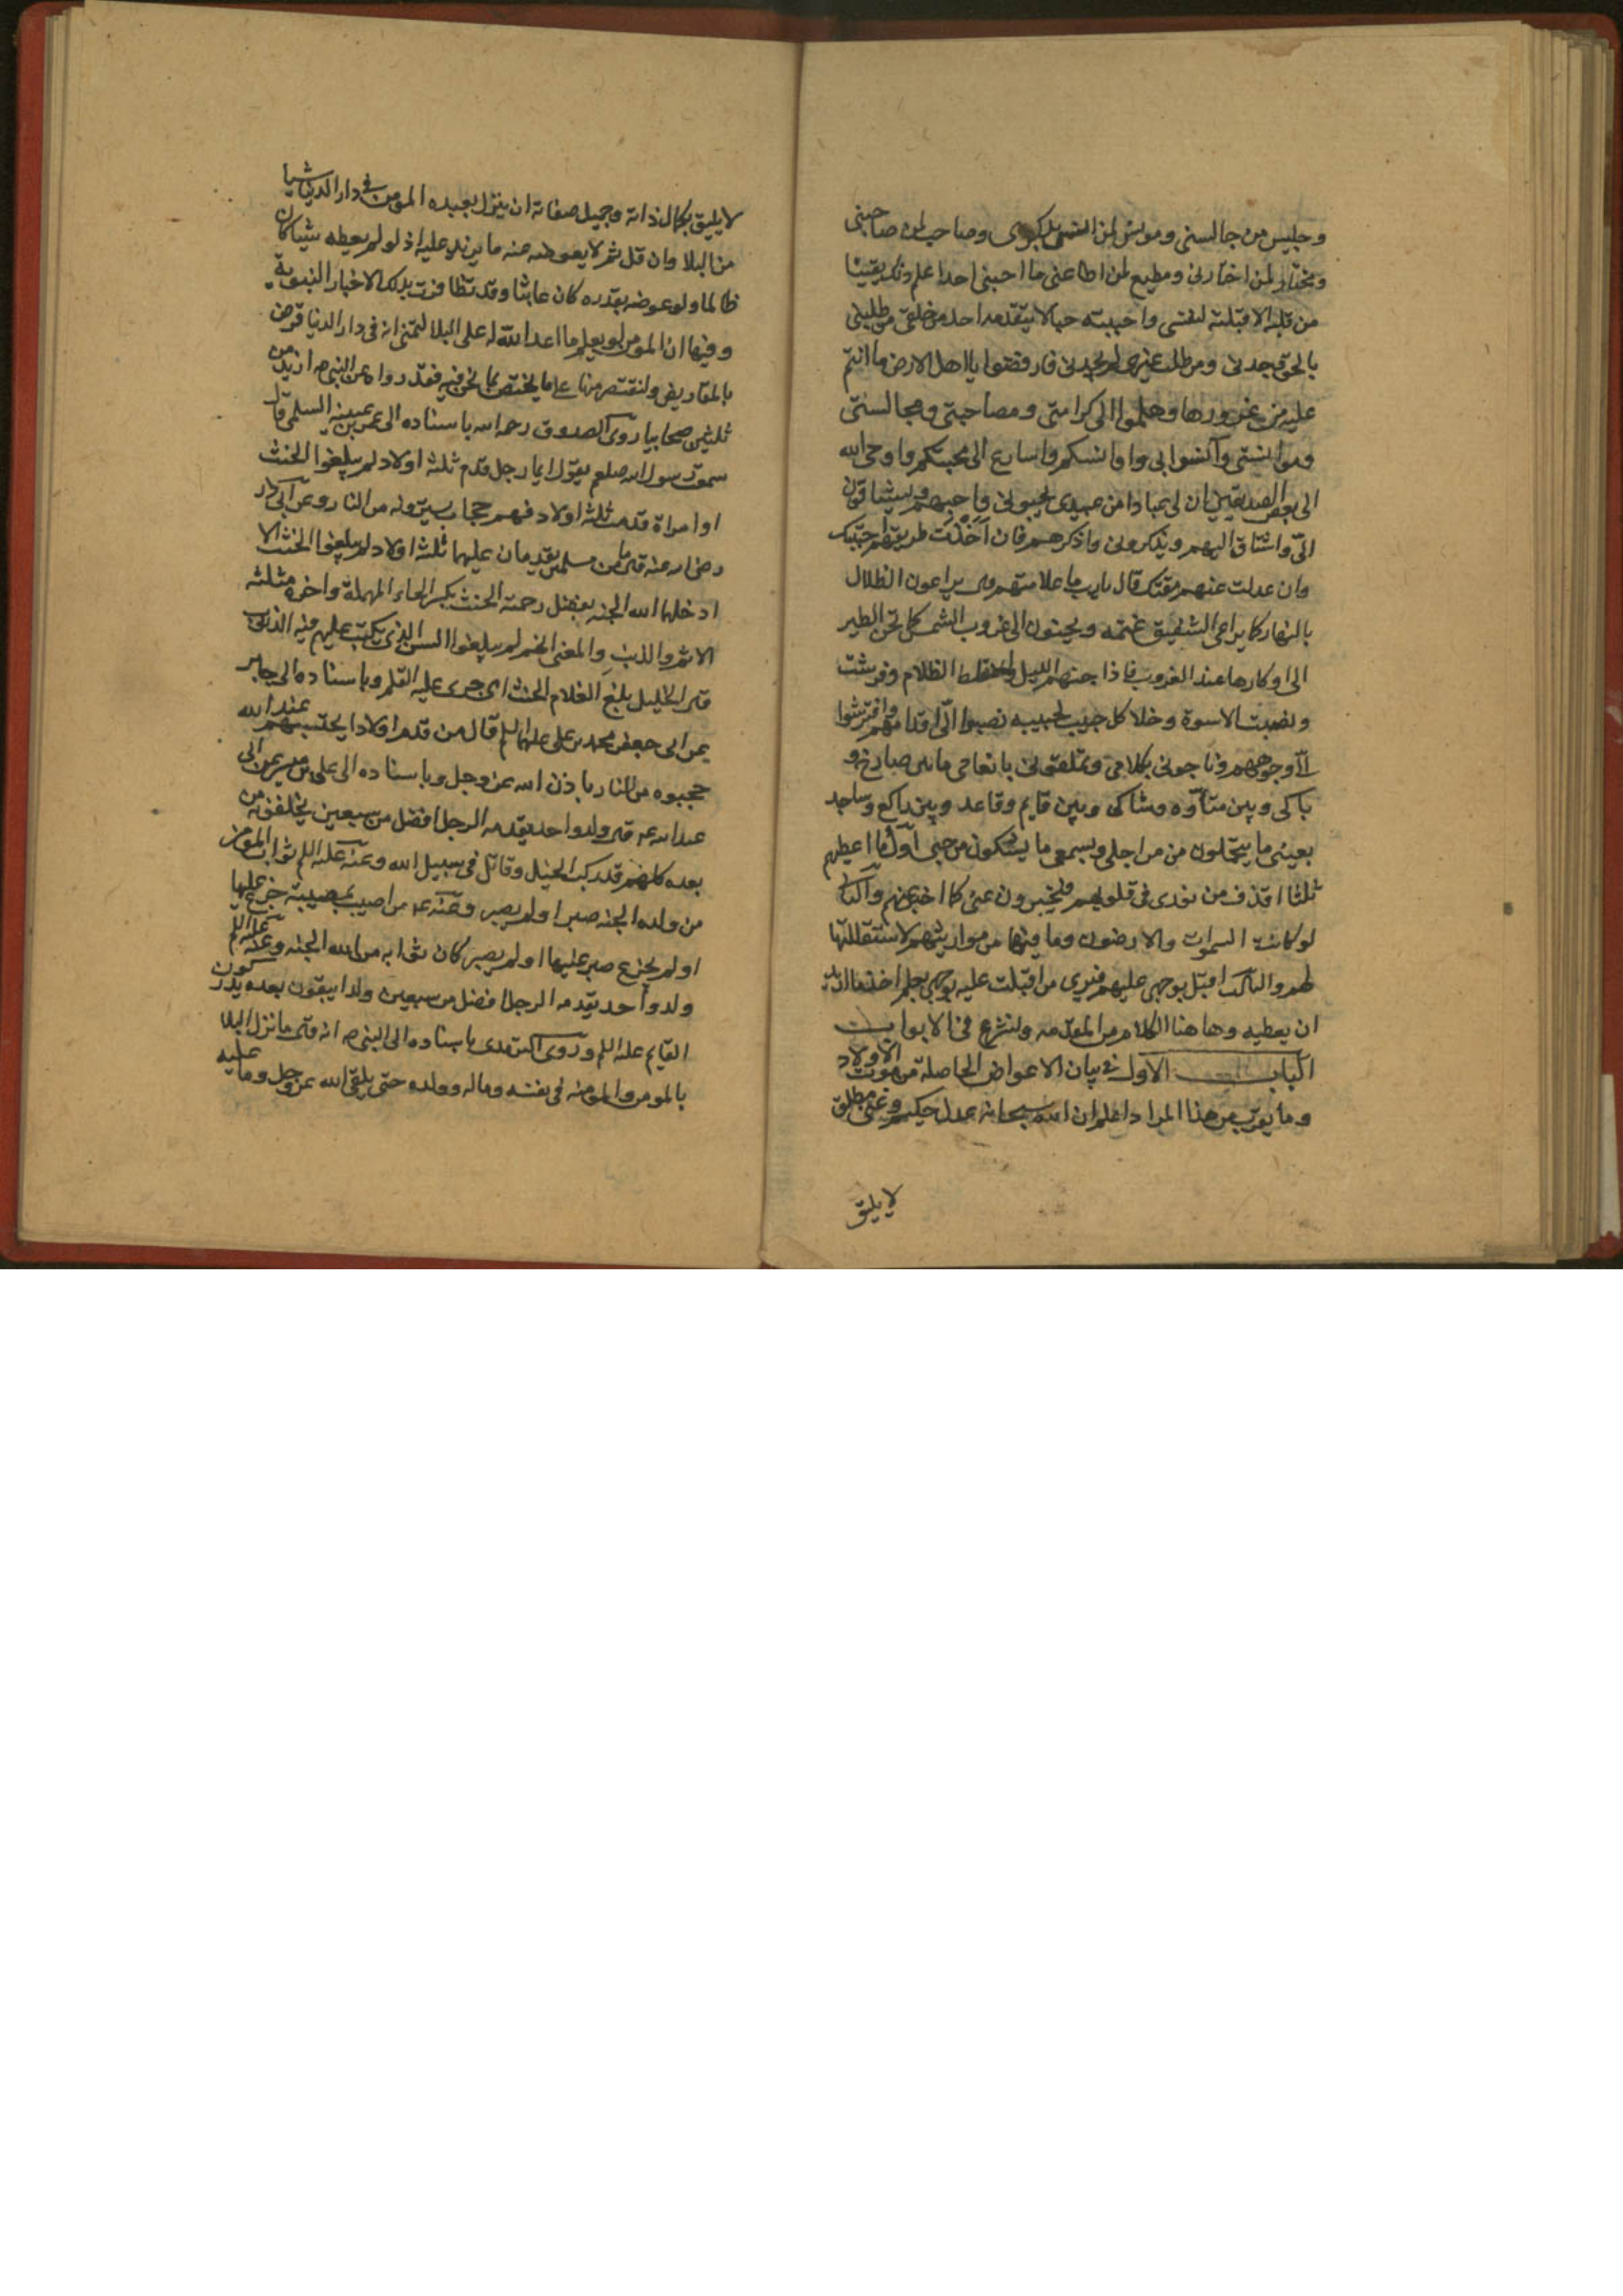 وجليس من جالسنى ومونس لمن انس بذكرى وصاحب لمن صاحبنى
ومختار لمن اختارنى ومطيع لمن اطاعنى ما احبنى احد اعلم ذلك يقينا
من قلبه الا قبلته لنفسى واحببته حبا لا يتقدمه احد من خلقى من طلبنى
بالحق وجدنى ومن طلب غيرى لم يجدنى فارفضوا يا اهل الارض ما انتم
عليه من غرورها وهلموا الى كرامتى ومصاحبتى ومجالستى
وموانستى وآنسوا بى اوانسكم واسارع الى محبتكم واوحى الله
الى بعض الصديقين ان لى عبادا من عبيدى يحبونى واحبهم ويشتاقون
الىّ واشتاق اليهم ويذكرونى واذكرهم فان اخذت طريقتهم احببتك
وان عدلت عنهم مقتك قال يا رب ما علامتهم قال يراعون الظلال
بالنهار كما يراعى الشفيق غنمه ويحنون الى غروب الشمس كما تحن الطير
الى اوكارها عند الغروب فاذا جنهم الليل واختلط الظلام وفرشت
ونصبت الاسرة وخلا كل حبيب بحبيبه نصبوا الىّ اقدامهم وافترشوا
لى وجوههم وناجونى بكلامى وتملقونى بانعامى ما بين صارخ و
باكى وبين متأوه وشاكى وبين قايم وقاعد وبين راكع وساجد
بعينى ما يتحملون من اجلى وبسمعى ما يشكون من حبى اول ما اعطيهم
ثلثا اقذف من نورى فى قلوبهم فيخبرون عنى كما اخبر عنهم والثانى
لو كانت السموات والارضون وما فيها من موازينهم لاستقللتها
لهم والثالث اقبل بوجهى عليهم فترى من اقبلت عليه بوجهى يعلم احد ما اريد
ان يعطيه وهاهنا الكلام من المقدمه ولنشرع فى الابواب
الباب الاول فى بيان الاعواض الحاصلة من موت الاولاد
وما يقرب من هذا المراد اعلم ان الله سبحانه عدل حكيم وغنى مطلق
لا يليق
لا يليق بكمال ذاته وجميل صفاته ان ينزل بعبده المومن فى دار الدنيا شيا
من البلا وان قل ثم لا يعوضه عنه ما يزيد عليه اذ لو لم يعطه شيا كان
ظالما ولو عوضه بقدره كان عابثا وقد تظافرت بذلك الاخبار النبوية
وفيها ان المومن لو يعلم ما اعد الله له على البلا لتمنى انه فى دار الدنيا قرض
بالمقاريض ولنقتصر منها على ما يختص بما نحن فيه فقد رواه عن النبى صم ازيد من
ثلثين صحابيا روى الصدوق رحمه الله باسناده الى عمر بن عبسه السلمى قال
سمعت رسول الله صلعم يقول ايما رجل قدم ثلثة اولاد لم يبلغوا الحنث
او امراة قدمت ثلثة اولاد فهم حجاب يسترونه من النار وعن ابى ذر
رضى الله عنه قال ما من مسلمين يقدمان عليهما ثلثة اولاد لم يبلغوا الحنث الا
ادخلهما الله الجنه بفضل رحمته الحنث بكسر الحاء المهملة واخره مثلثه
الاثم والذنب والمعنى انهم لم يبلغوا السن الذى يكتب عليهم فيه الذنب
قال الخليل بلغ الغلام الحنث اى جرى عليه القلم وباسناده الى جابر
عن ابى جعفر محمد بن على عليهما السلم قال من قدم اولادا يحتسبهم عند الله
حجبوه من النار باذن الله عز وجل وباسناده الى على بن ميسر عن ابى
عبد الله عم قال ولد واحد يقدمه الرجل افضل من سبعين يخلفونه من
بعده كلهم قد ركب الخيل وقاتل فى سبيل الله وعنه عليه السلم ثواب المومن
من ولده الجنه صبر او لم يصبر وعنه عم من اصيب بمصيبة جزع عليها
او لم يجزع صبر عليها او لم يصبر كان ثوابه من الله الجنه وعنه عليه السلم
ولد واحد يقدمه الرجل افضل من سبعين ولدا يبقون بعده يدركون
القايم عليه السلم وروى الترمذى باسناده الى النبى صم انه قال ما نزل البلا
بالمومن والمومنه فى نفسه وماله وولده حتى يلقى الله عز وجل وما عليه